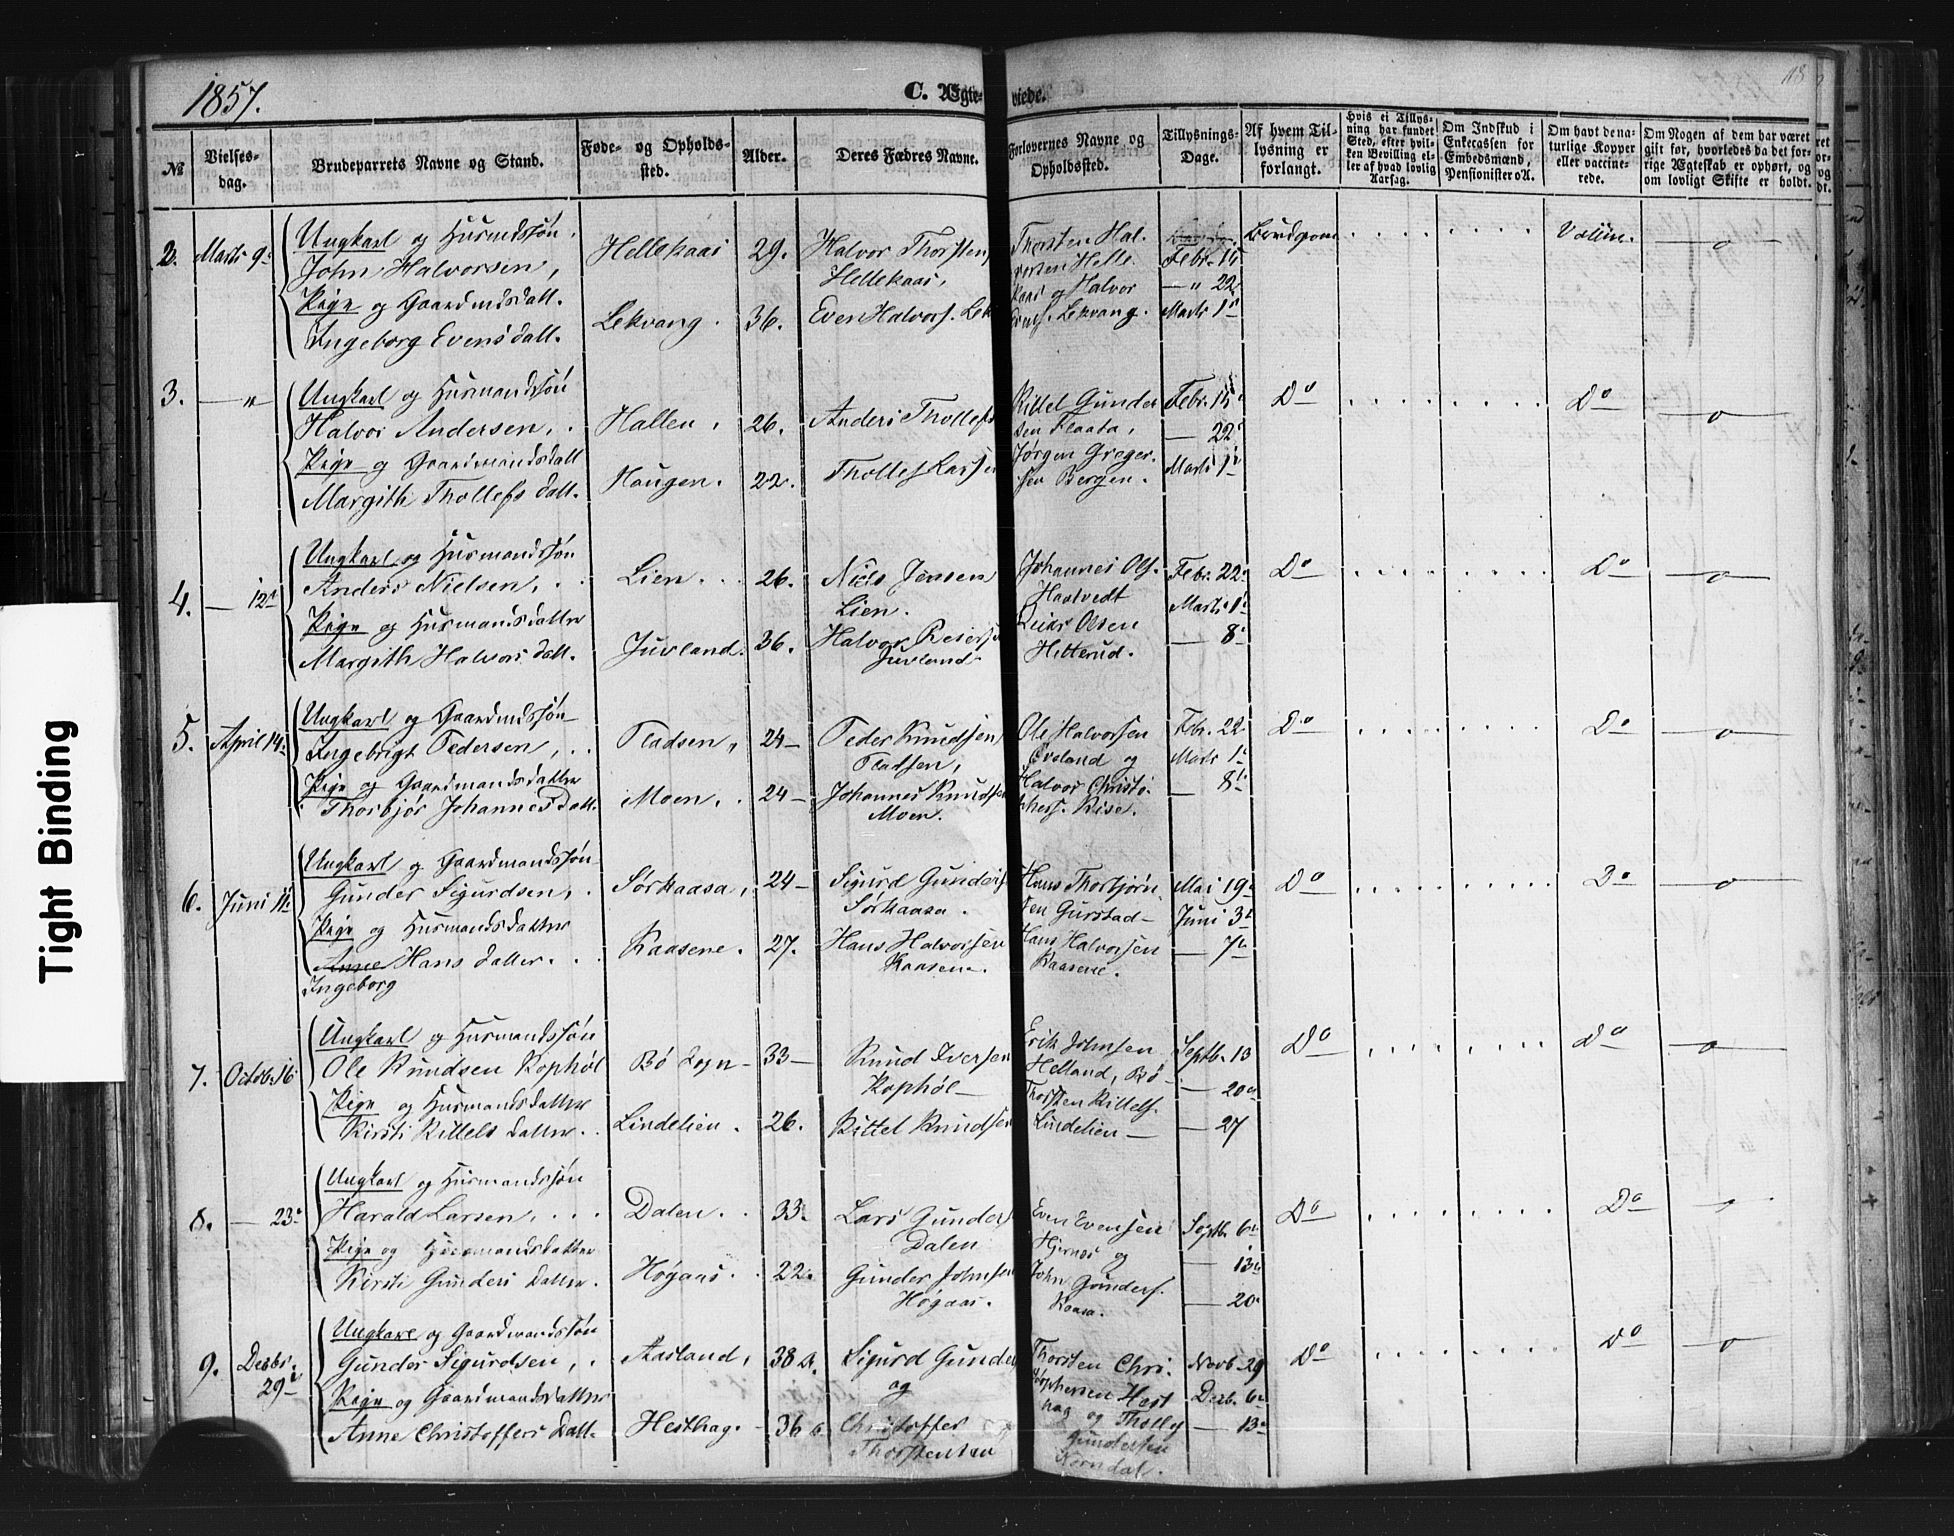 1857.
C. Ægte- viede.
118
№
Vielses-
dag.
Brudeparrets Navne og Stand.
Føde- og Opholds-
sted.
Alder.
Deres Fædres Navne.
Forlovernes Navne og
Opholdssted.
Tillysnings-
Dage.
Af hvem Til-
lysning er
forlangt.
Hvis ei Tillys-
ning har fundet
Sted, efter hvil-
ken Bevilling el-
ler af hvad lovlig
Aarsag.
Om Indskud i
Enkecassen for
Embedsmænd,
Pensionister o. A.
Om havt de na-
turlige Kopper
eller vaccine-
rede.
Om Nogen af dem har været
gift før, hvorledes da det for-
rige Ægteskab er ophørt, og
om lovligt Skifte er holdt.
2. Marts 9
Ungkarl og Husmdssøn
John Halvorsen,
Pige og Gaardmdsdatt.
Ingeborg Evensdatt.
Hellekaas
Lekvang.
29.
36.
Halvor Thorsten
Hellekaas,
Even Halvors. Lek
Thorsten Hal-
vorsen Helle-
kaas og Halvor
Evens. Lekvang.
Febr. 15
— " 22
Marts 1
Brudgom
Vaccin.
—o—
3. — "
Ungkarl og Husmandssøn
Halvor Andersen, .
Pige og Gaardmandsdatt
Margith Thollefsdatt.
Hallen,
Haugen.
26.
22.
Anders Thollefs
Thollef Larsen
Kittel Gunder
sen Flaata,
Jørgen Greger-
sen Bergen.
Febr. 15
— 22
Marts 1
Do
Do
—o—
4. — 12
Ungkarl og Husmandssøn
Anders Nielsen, . .
Pige og Husmandsdatter
Margith Halvorsdatt.
Lien. . .
Juvland.
26.
36.
Niels Jensen
Lien.
Halvor Reiers
Juvland
Johannes Ols.
Haatvedt
Olsen
Hitterud.
Febr. 22
Marts 1
— 8
Do
Do
—o—
5. April 14
Ungkarl og Gaardmdssøn
Ingebrigt Pedersen, . .
Pige og Gaardmandsdatter
Thorbjør Johannesdatt.
Pladsen,
Moen. .
24—
24—
Peder Knudsen
Pladsen,
Johannes Knudsen
Moen.
Ole Halvorsen
Øveland og
Halvor Christo-
phers. Riise.
Febr. 22
Marts 1
— 8
Do
Do
—o—
6. Juni 11
Ungkarl og Gaardmandssøn
Gunder Sigurdsen, .
Pige og Husmandsdatter
Anne Hansdatter. . .
Ingeborg
Sørkaasa,
Kaasene.
24—
27.
Sigurd Gunders
Sørkaasa.
Hans Halvorsen
Kaasene.
Hans Thorbjørn-
sen Gurstad—
Hans Halvorsen
Kaasene.
Mai 19
Juni 3
— 7
Do
Do
—o—
7. Octob. 16
Ungkarl og Husmandssøn
Ole Knudsen Kophøl
Pige og Husmandsdatter
Kirsti Kittelsdatter. .
Bø Sogn—
Lindelien.
33—
26.
Knud Iversen
Kophøl—
Kittel Knudsen
Erik Johnsen
Helland, Bø—
Thorsten Kittels.
Lindelien—
Septb. 13
— 20
— 27
Do
Do
—o—
8. — 23
Ungkarl og Husmandssøn
Harald Larsen, . . .
Pige og Husmandsdatter
Kirsti Gundersdatter.
Dalen. .
Høgaas. .
33.
22.
Lars Gunders
Dalen
Gunder Johnsen
Høgaas.
Even Evensen
Hjernes og
John Gunders.
Kaasa.
Septb. 6
— 13
— 20
Do
Do
—o—
9. Decbr.
29
Ungkarl og Gaardmandssøn
Gunder Sigurdsen, .
Pige og Gaardmandsdatter
Anne Christoffersdatt.
Aasland,
Hesthag.
38
36
Sigurd Gunder
og
Christoffer
Thorstensen
Thorsten Chri-
stophersen Hest
hag og Thollef
Gundersen
Norndal.
Novb. 29
Decb. 6
— 13
Do
Do
—o—
Tight Binding